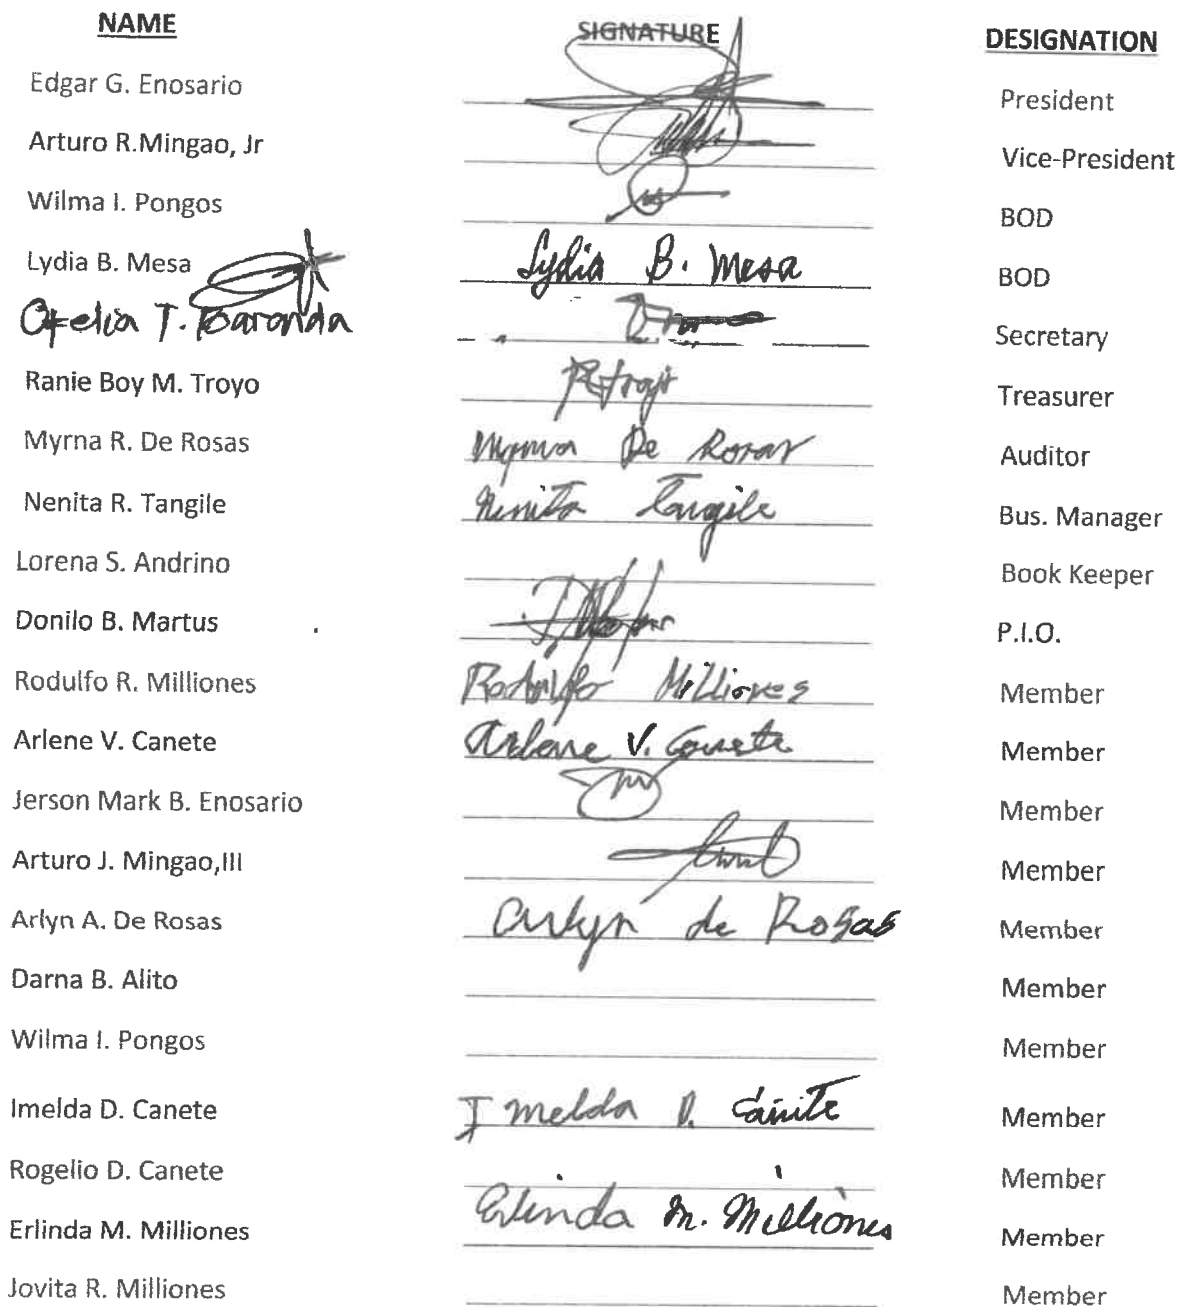 NAME SIGNATURE DESIGNATION
Edgar G. Enosario President
Arturo R.Mingao, Jr Vice-President
Wilma I. Pongos BOD
Lydia B. Mesa Lydia B. Mesa BOD
Ofelia T. Baranda Secretary
Ranie Boy M. Troyo Treasurer
Myrna R. De Rosas Myrna De Rosas Auditor
Nenita R. Tangile Ninita Tangile Bus. Manager
Lorena S. Andrino Book Keeper
Donilo B. Martus P.I.O.
Rodulfo R. Milliones Rodulfo Milliones Member
Arlene V. Canete Arlene V. Canete Member
Jerson Mark B. Enosario Member
Arturo J. Mingao,III Member
Arlyn A. De Rosas Arlyn de Rosas Member
Darna B. Alito Member
Wilma I. Pongos Member
Imelda D. Canete Imelda D. Cañite Member
Rogelio D. Canete Member
Erlinda M. Milliones Erlinda M. Milliones Member
Jovita R. Milliones Member